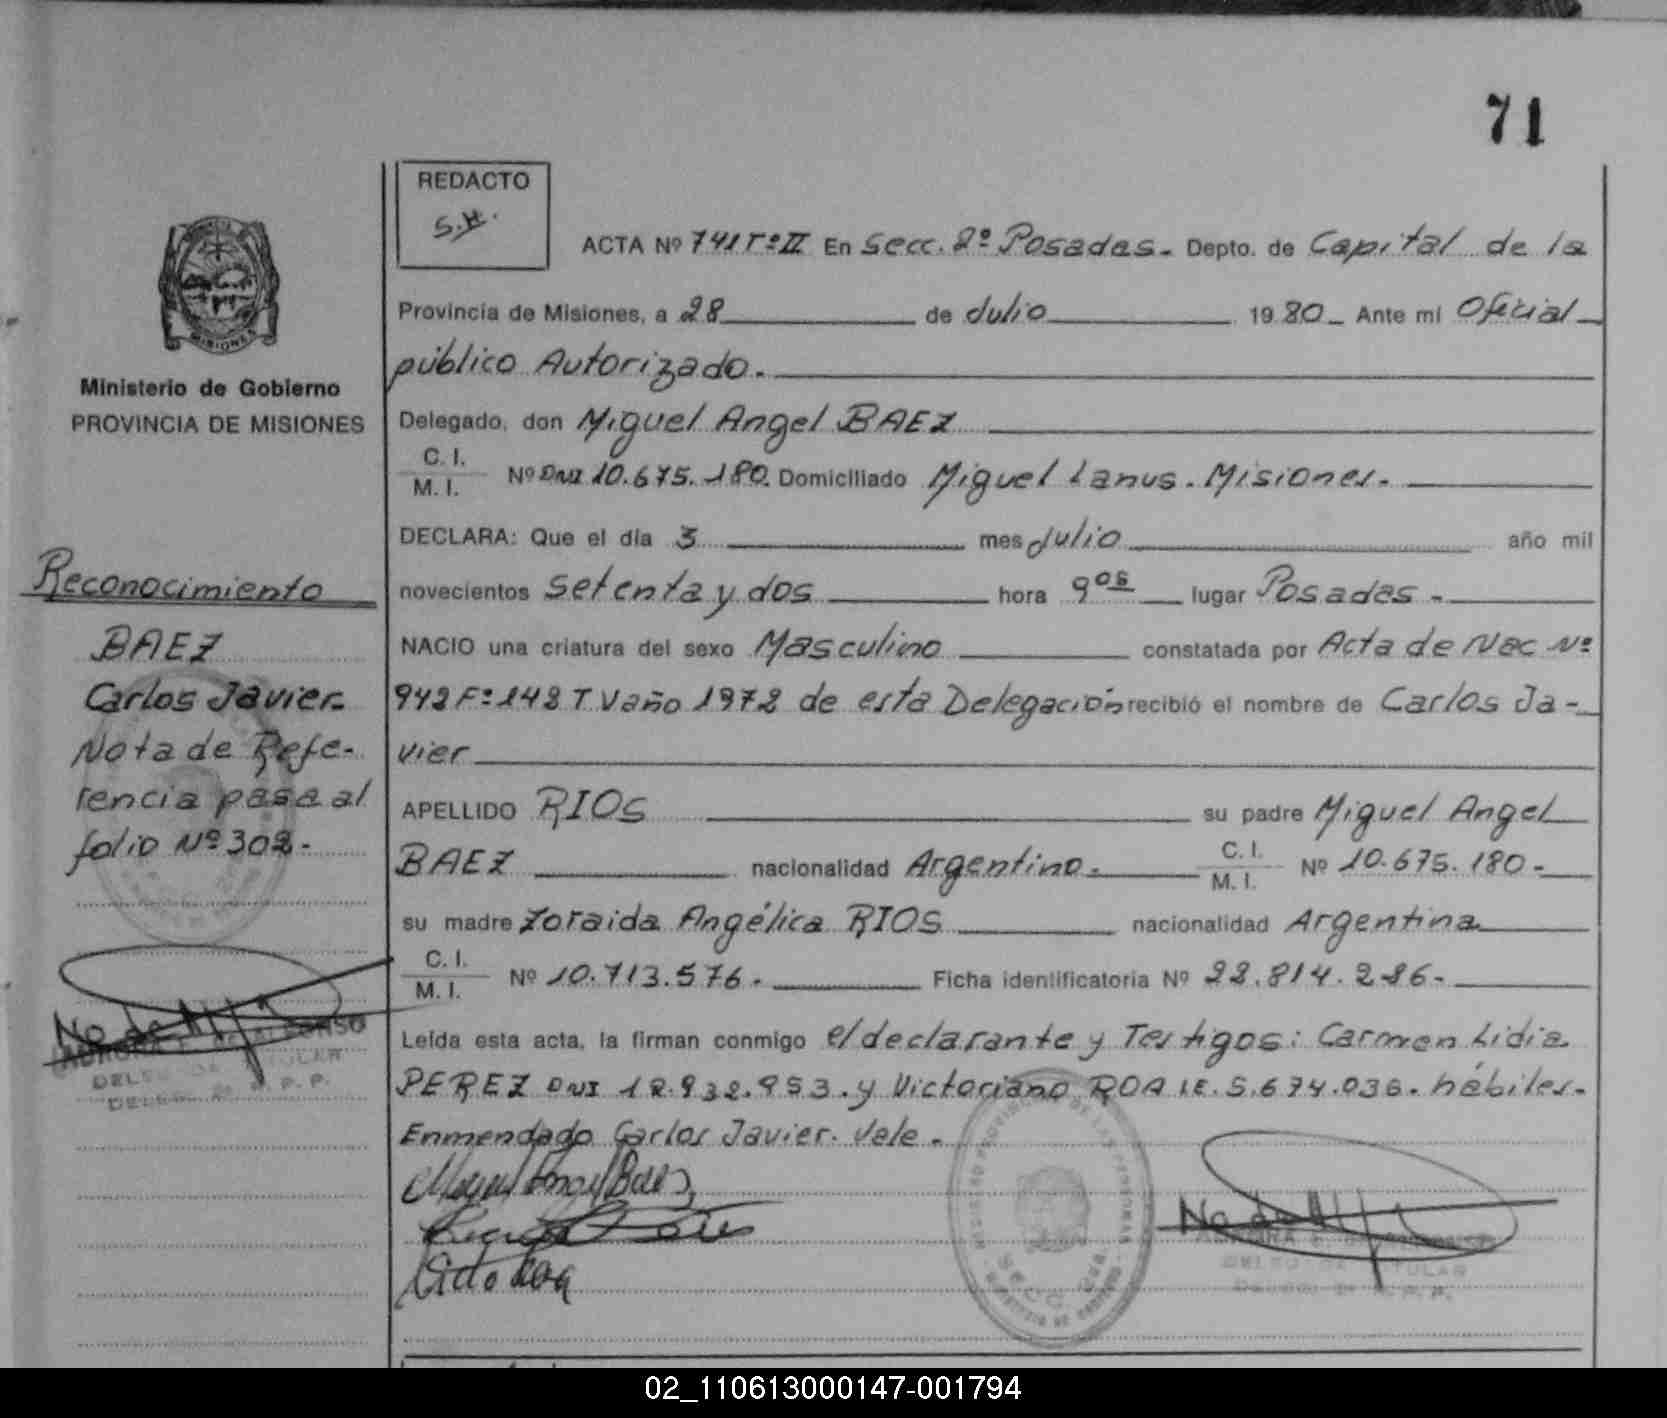 71
REDACTO
S.H.
ACTA Nº 741 Tº II En Secc. 2º Posadas. Depto. de Capital de la
Provincia de Misiones, a 28 de Julio 1980 Ante mi Oficial
público Autorizado.
Delegado, don Miguel Angel BAEZ
C. I.
M. I. Nº DNI 10.675.180. Domiciliado Miguel Lanus. Misiones.
DECLARA: Que el día 3 mes Julio año mil
novecientos setenta y dos hora 9 05 lugar Posadas.
NACIO una criatura del sexo Masculino constatada por Acta de Nac Nº
942 Fº 142 T V año 1972 de esta Delegación recibió el nombre de Carlos Ja-
vier
APELLIDO RIOS su padre Miguel Angel
BAEZ nacionalidad Argentino. C. I. M. I. Nº 10.675.180-
su madre Zoraida Angélica RIOS nacionalidad Argentina
C. I.
M. I. Nº 10.713.576. Ficha identificatoria Nº 22.814.286-
Leída esta acta, la firman conmigo el declarante y Testigos: Carmen Lidia
PEREZ DNI 12.932.953. y Victoriano ROA LE. 5.674.036. hábiles.
Enmendado Carlos Javier. Vale.
Miguel Angel Baez
MISIONES
Ministerio de Gobierno
PROVINCIA DE MISIONES
Reconocimiento
BAEZ
Carlos Javier.
Nota de Refe-
rencia pasa al
folio Nº 302.
02_110613000147-001794